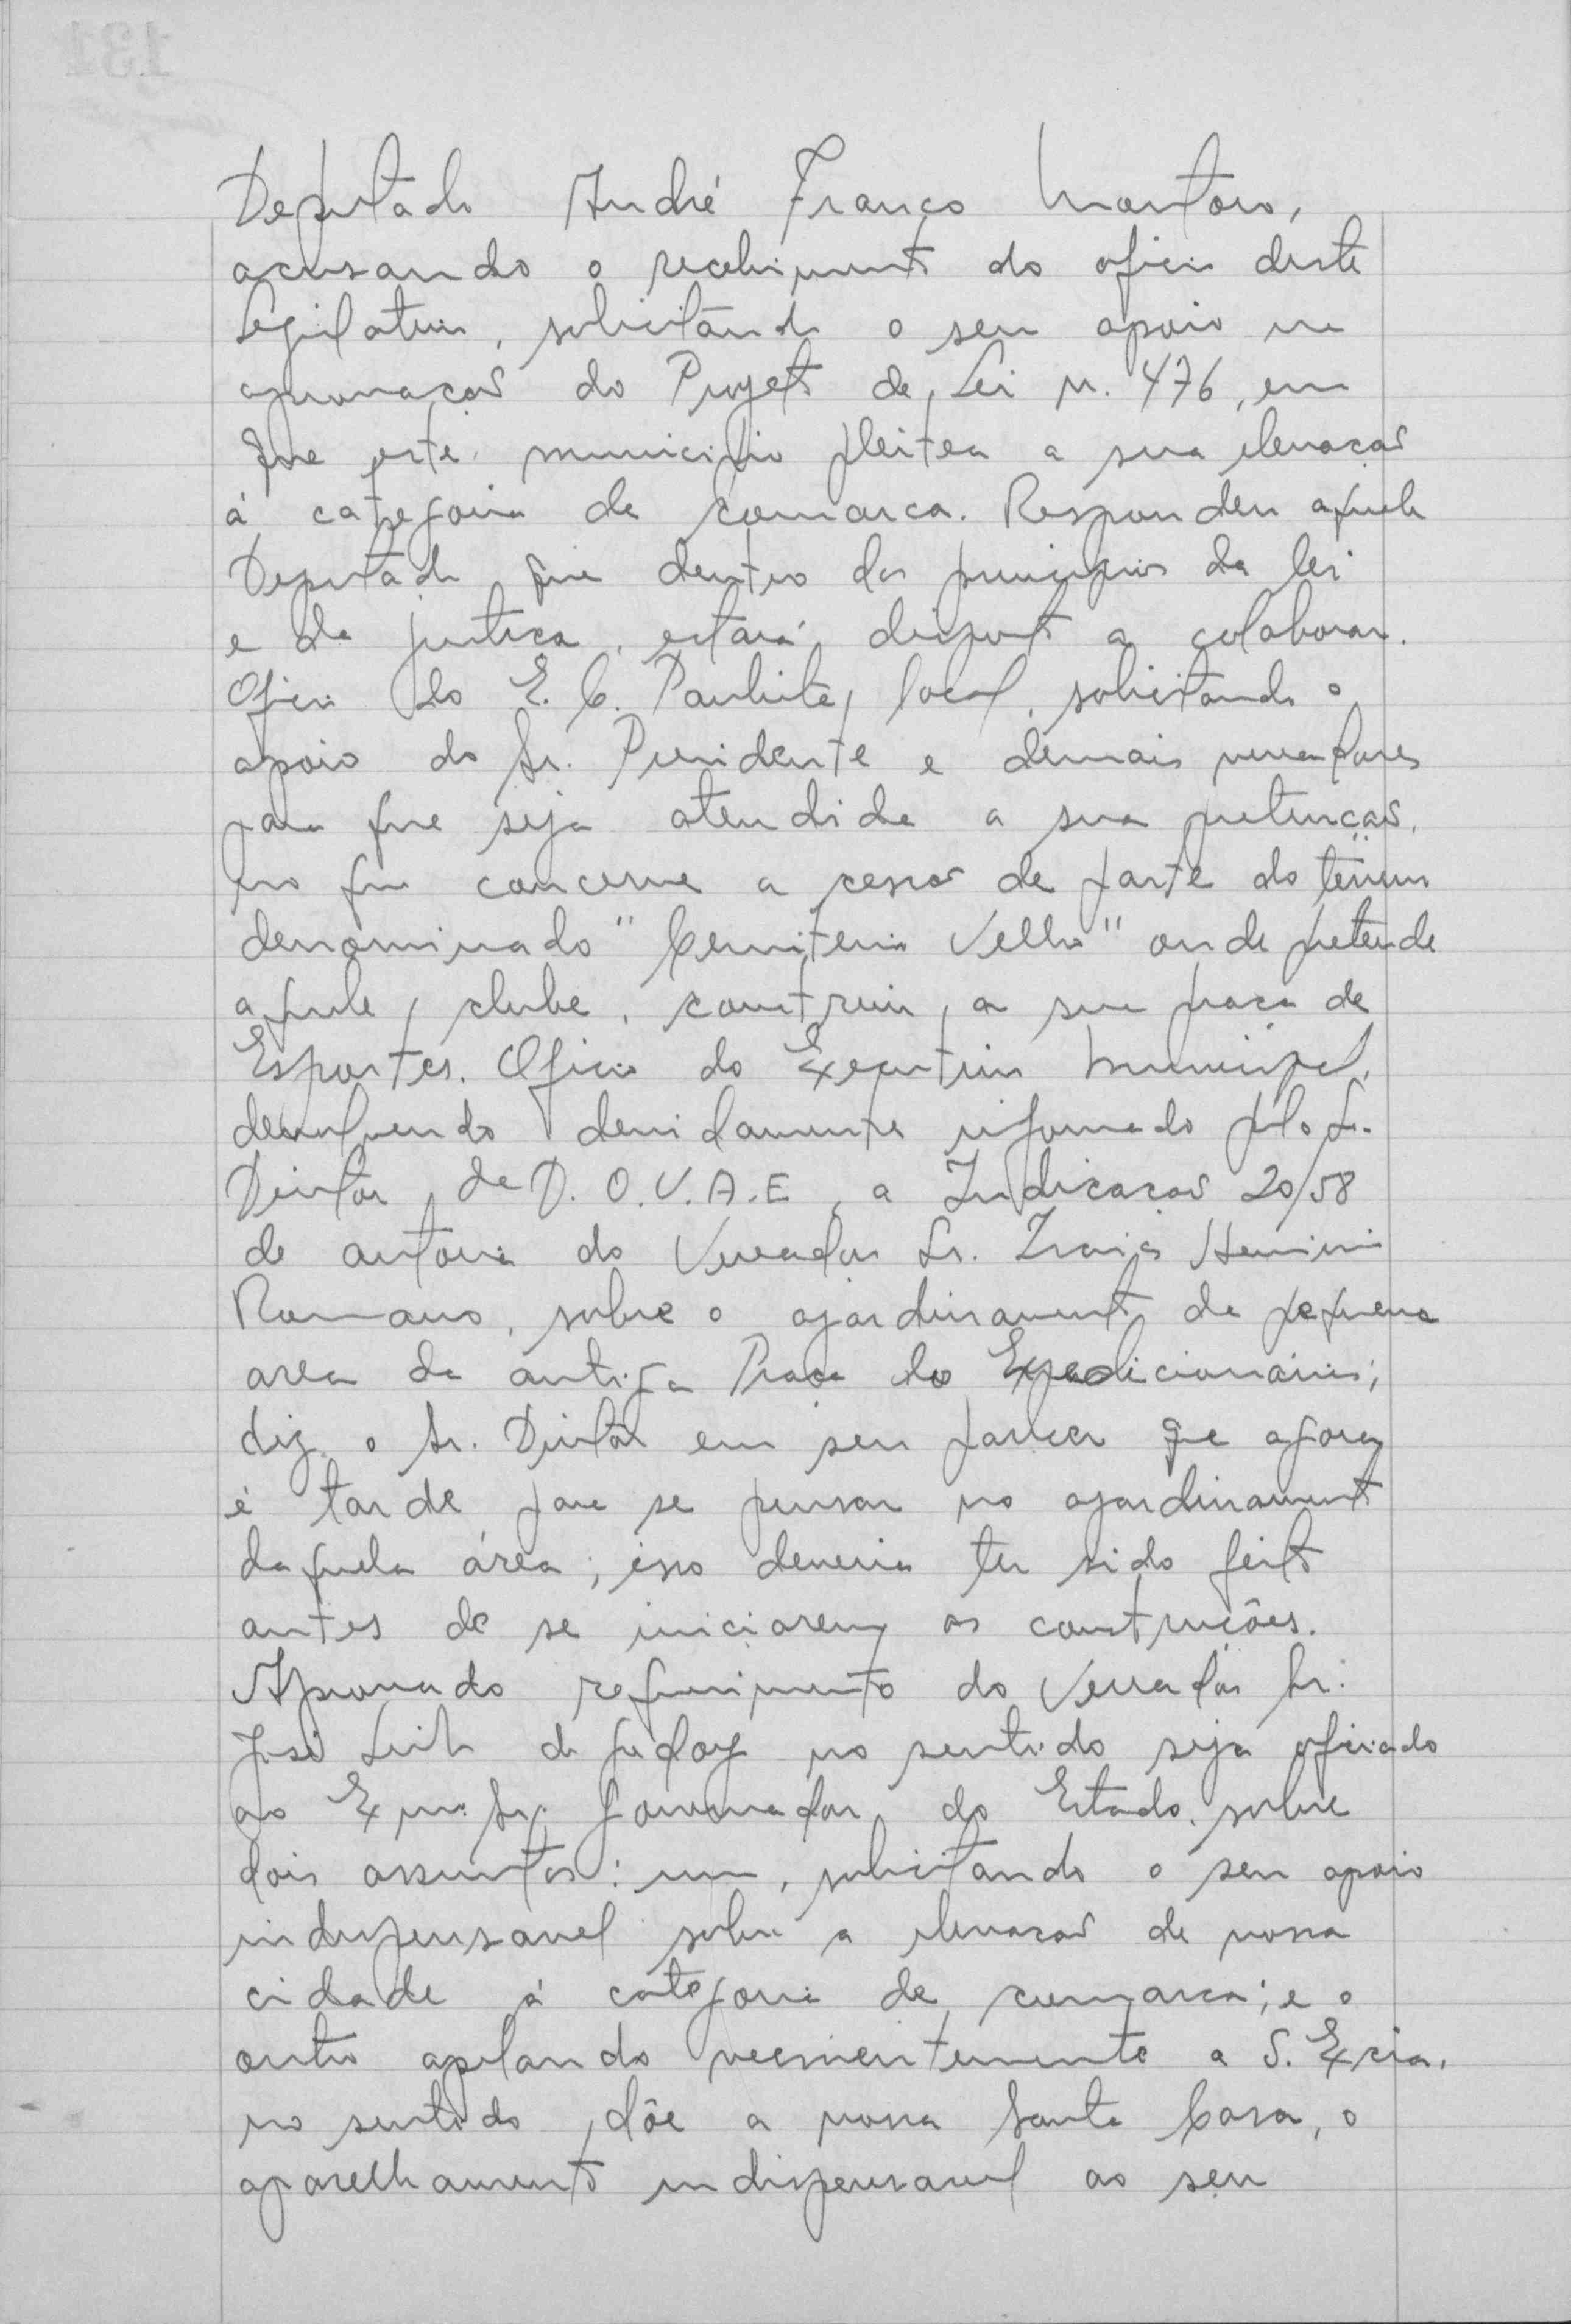 Deputado André Franco Montoro,
acusando o recebimento do oficio deste
Legislativo, solicitando o seu apoio na
aprovação do Projeto de Lei n. 476, em
que este municipio pleitea a sua elevação
á categoria de comarca. Respondeu aquele
Deputado que dentro dos principios da lei
e da justiça, estará disposto a colaborar.
Oficio do E. C. Paulista, local, solicitando o
apoio do Sr. Presidente e demais vereadores
para que seja atendida a sua pretenção,
no que concerne a cessão de parte do terreno
denominado "Cemiterio Velho" onde pretende
aquele clube, construir, a sua praça de
Esportes. Oficio do Executivo Municipal,
devolvendo devidamente informado pelo Sr.
Diretor da D. O. V. A. E, a Indicação 20/58
de autoria do Vereador Sr. Isaias Herminio
Romano, sobre o ajardinamento da pequena
area da antiga Praça do Expedicionário;
diz o Sr. Diretor em seu parecer que agora
é tarde para se pensar no ajardinamento
daquela área; isso deveria ter sido feito
antes de se iniciarem as construções.
Aprovado requerimento do Vereador Sr.
José Leite de Godoy no sentido seja oficiado
ao Exmo. Sr. Governador do Estado, sobre
dois assuntos: um, solicitando o seu apoio
indispensavel sobre a elevação de nossa
cidade á categoria de comarca; e o
outro apelando veementemente a S. Excia.
no sentido, dôe a nossa Santa Casa, o
aparelhamento indispensavel ao seu